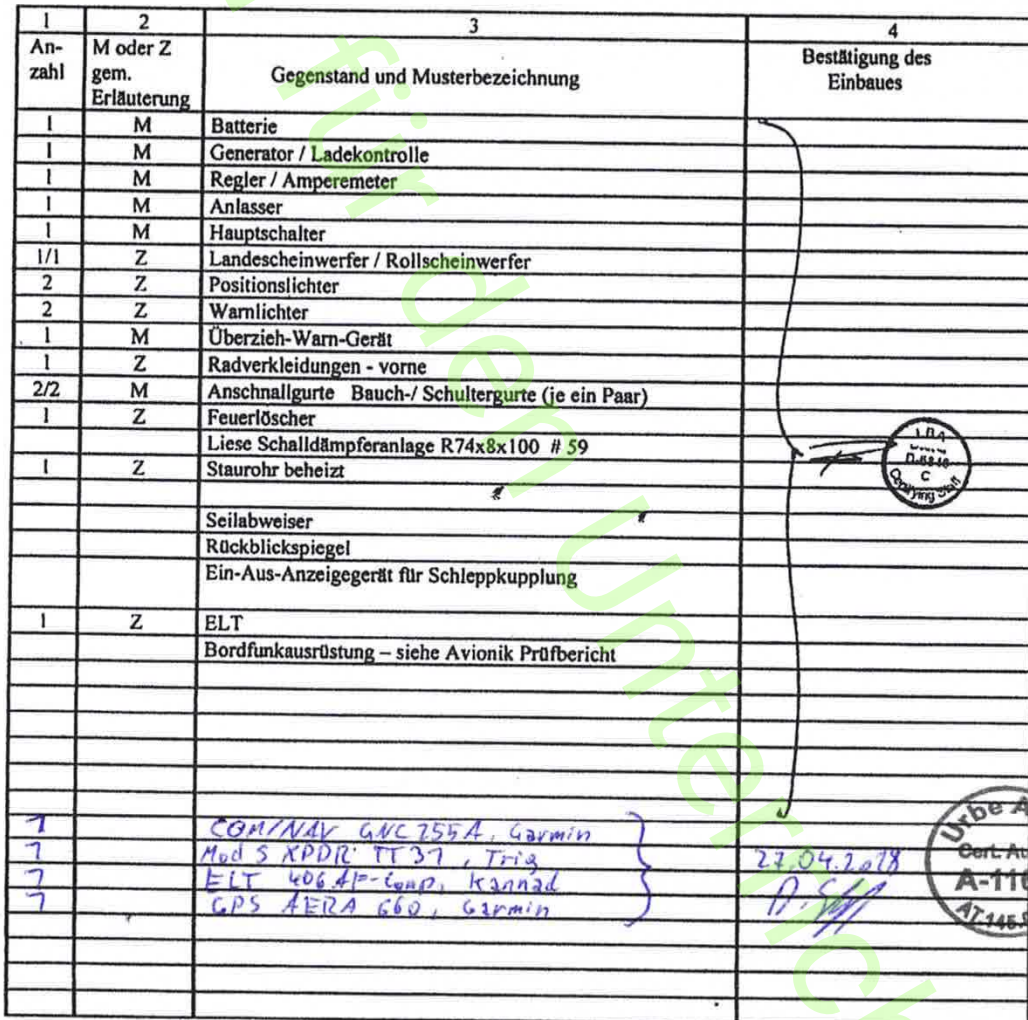 1 2 3 4
An-zahl M oder Z gem. Erläuterung Gegenstand und Musterbezeichnung Bestätigung des Einbaues
1 M Batterie
1 M Generator / Ladekontrolle
1 M Regler / Amperemeter
1 M Anlasser
1 M Hauptschalter
1/1 Z Landescheinwerfer / Rollscheinwerfer
2 Z Positionslichter
2 Z Warnlichter
1 M Überzieh-Warn-Gerät
1 Z Radverkleidungen - vorne
2/2 M Anschnallgurte Bauch-/ Schultergurte (je ein Paar)
1 Z Feuerlöscher
Liese Schalldämpferanlage R74x8x100 # 59
1 Z Staurohr beheizt
Seilabweiser
Rückblickspiegel
Ein-Aus-Anzeigegerät für Schleppkupplung
1 Z ELT
Bordfunkausrüstung – siehe Avionik Prüfbericht
1 COM/NAV GNC 255A, Garmin
1 Mod S XPDR TT31, Trig
1 ELT 406 AF-Comp, Kannad
1 GPS AERA 660, Garmin
27.04.2018
LBA
C
Certifying Staff
Urbe A
Cert. Au
A-110
AT.145.
für den Unterrich